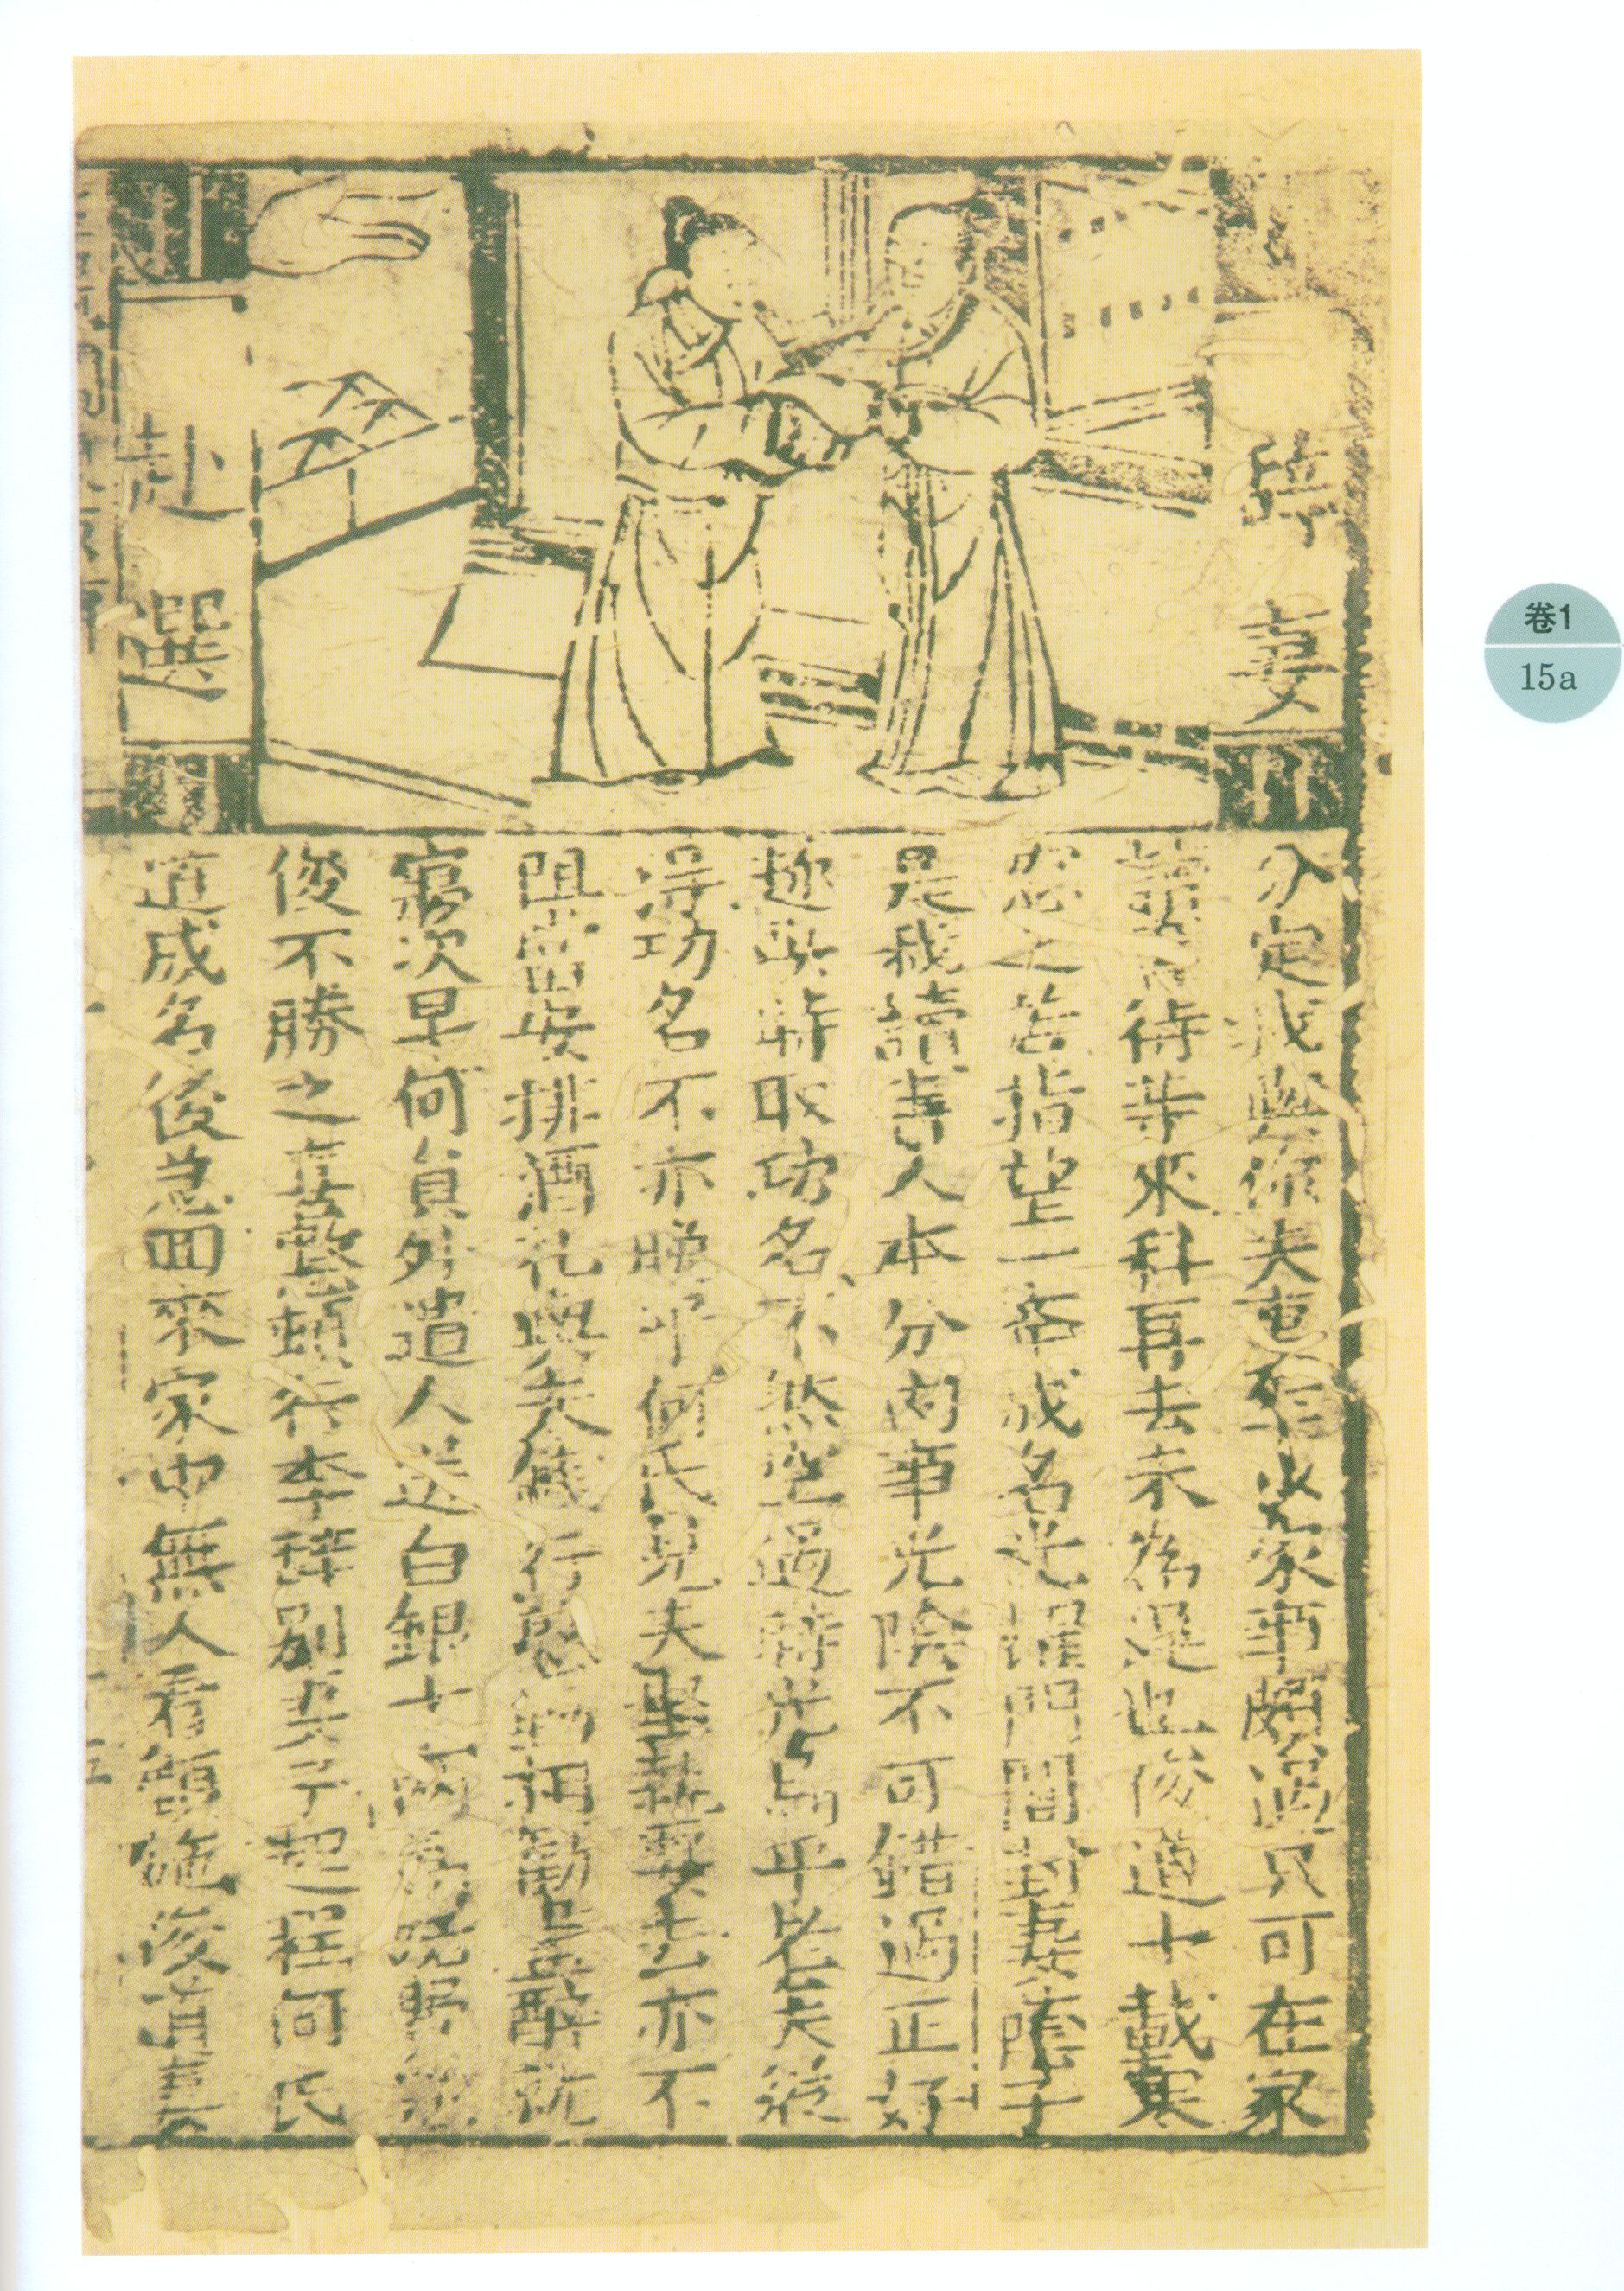 辭妻
赴選
分定我與你夫妻到此家事頗過只可在家
讀書待等來科再去未為遲也俊道十載寒
窓之苦指望一舉成名光耀門閭封妻蔭子
是我讀書人本分內事光陰不可錯過正好
趁此時取功名不然空過時光與乎老夫從
得功名不亦晚乎何氏見夫堅執要去亦不
阻當安排酒礼與夫餞行慇懃相勸量醉就
寢次早何員外遣人送白銀十兩為路費
俊不勝之喜整頓行李辭別妻子起程何氏
道成名後急回來家中無人看顧
卷1
15a